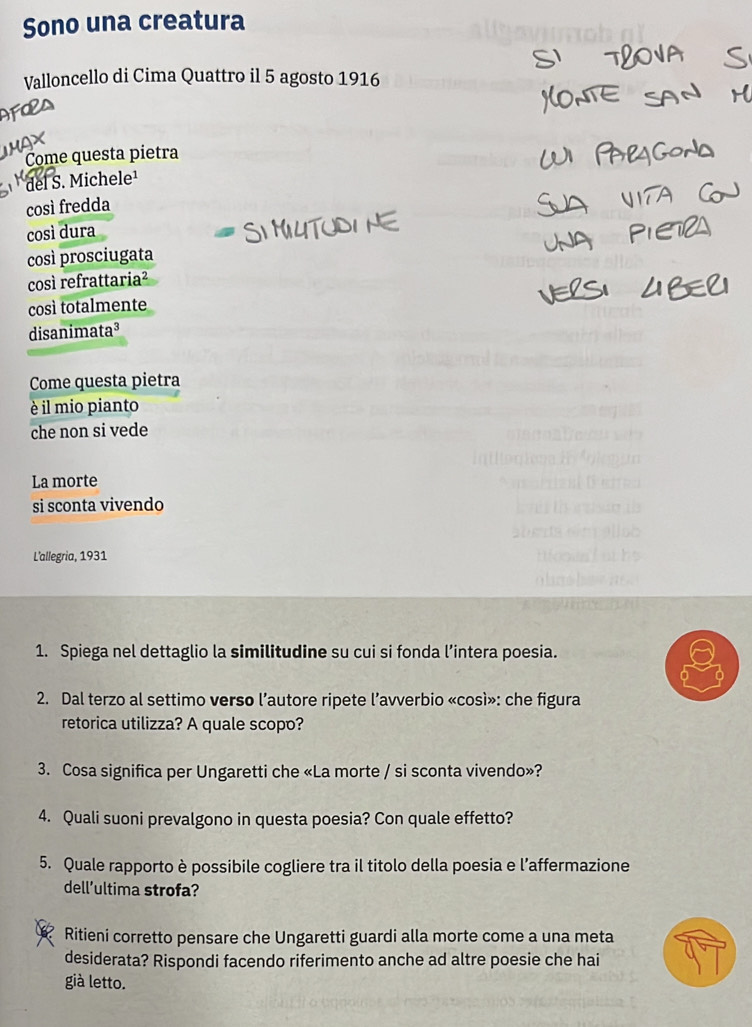 Sono una creatura
Valloncello di Cima Quattro il 5 agosto 1916
SI TROVA
MONTE SAN
Come questa pietra
del S. Michele¹
LUI PARAGONA
così fredda
SUA VITA CON
così dura
SIMILITUDINE
UNA PIETRA
così prosciugata
così refrattaria²
VERSI LIBERI
così totalmente
disanimata³
Come questa pietra
è il mio pianto
che non si vede
La morte
si sconta vivendo
L'allegria, 1931
1. Spiega nel dettaglio la similitudine su cui si fonda l'intera poesia.
2. Dal terzo al settimo verso l'autore ripete l'avverbio «così»: che figura
retorica utilizza? A quale scopo?
3. Cosa significa per Ungaretti che «La morte / si sconta vivendo»?
4. Quali suoni prevalgono in questa poesia? Con quale effetto?
5. Quale rapporto è possibile cogliere tra il titolo della poesia e l'affermazione
dell'ultima strofa?
Ritieni corretto pensare che Ungaretti guardi alla morte come a una meta
desiderata? Rispondi facendo riferimento anche ad altre poesie che hai
già letto.